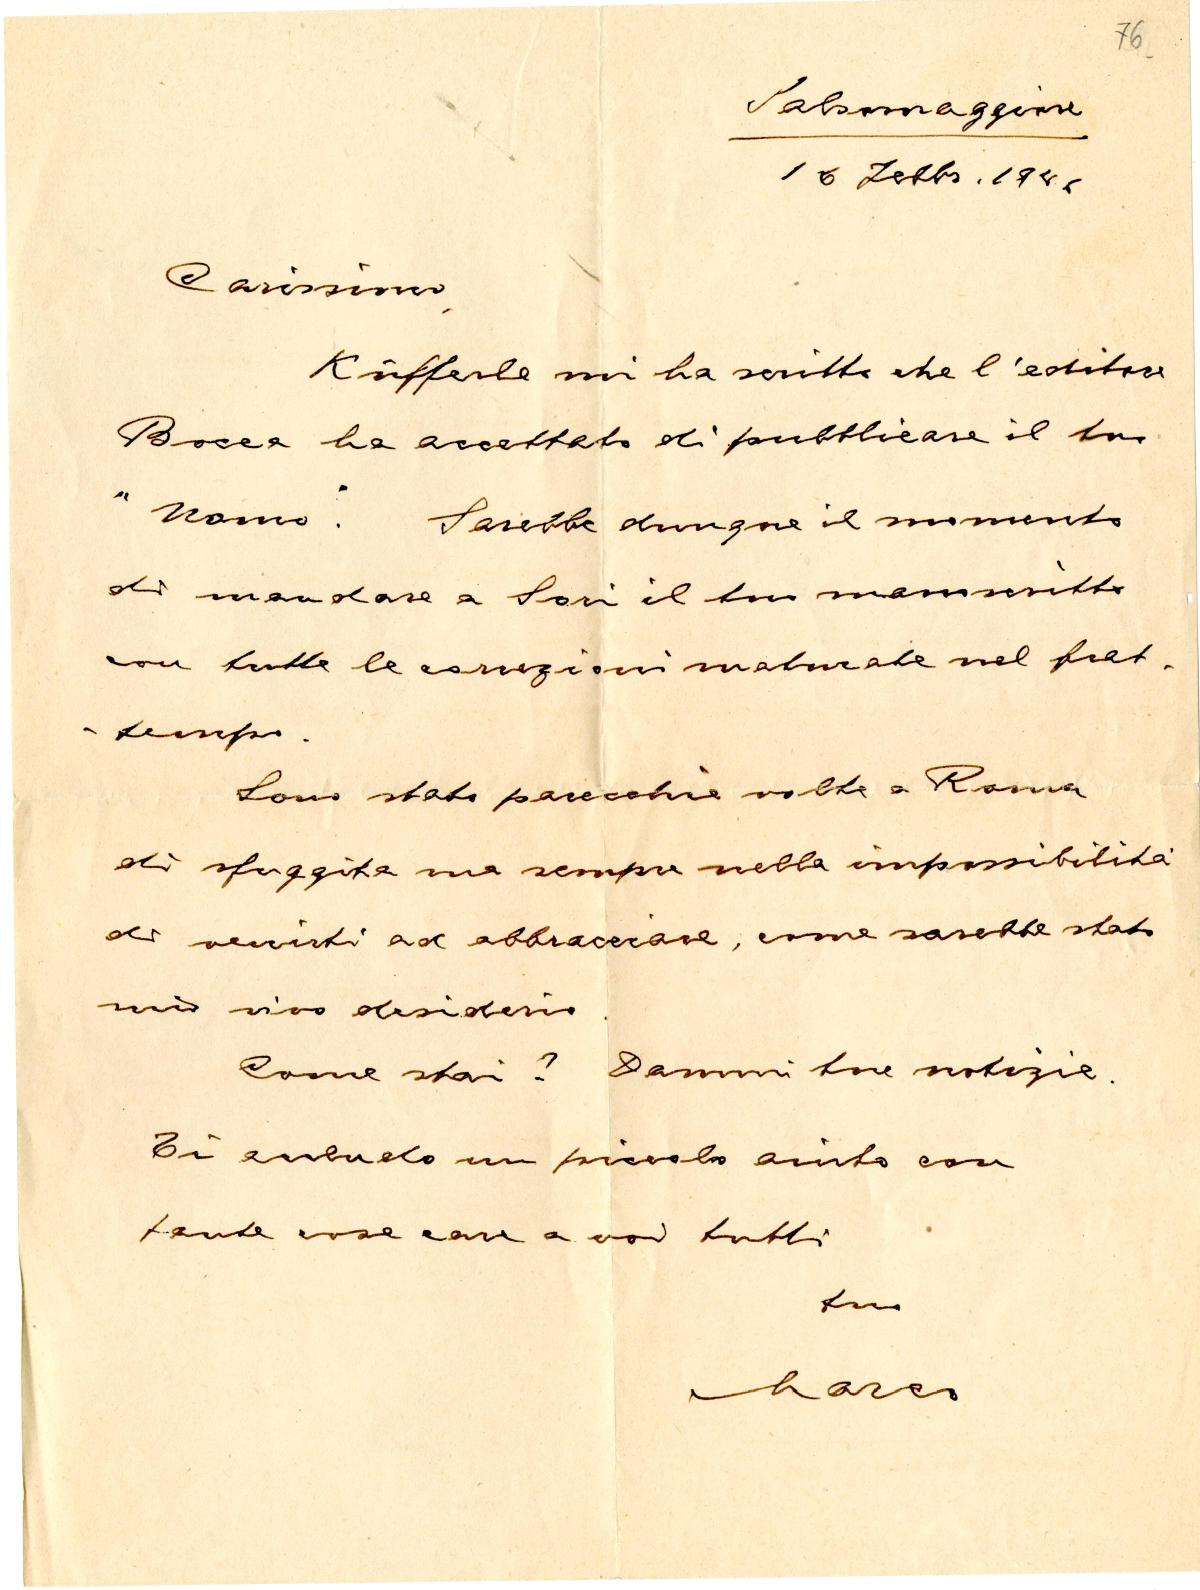 76
Salsomaggiore
16 Febbr. 194
Carissimo,
Küfferle mi ha scritto che l'editore
Bocca ha accettato di pubblicare il tuo
"Uomo". Sarebbe dunque il momento
di mandare a Sori il tuo manoscritto
con tutte le correzioni maturate nel frat-
-tempo.
Sono stato parecchie volte a Roma
di sfuggita ma sempre nella impossibilità
di venirti ad abbracciare, come sarebbe stato
mio vivo desiderio.
Come stai? Dammi tue notizie.
Ti un piccolo aiuto con
tante cose care a voi tutti
tuo
Marco